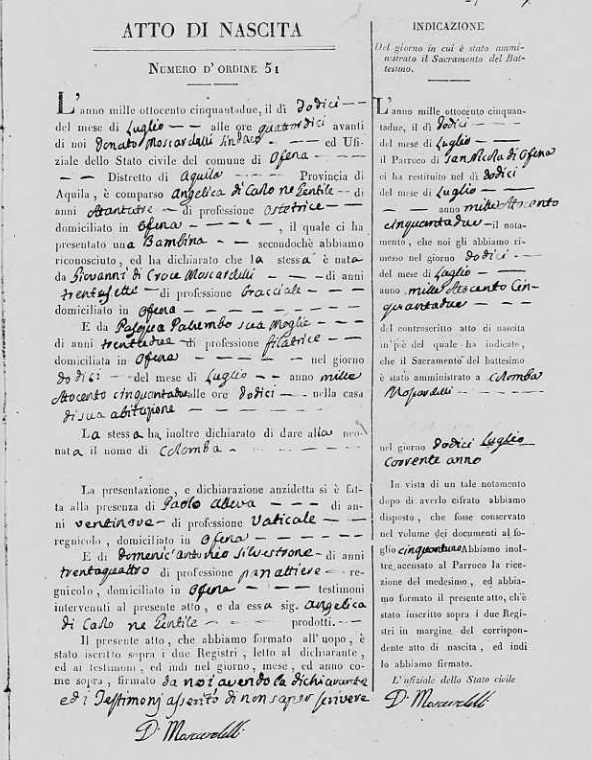 ATTO DI NASCITA
NUMERO D'ORDINE 51
L'anno mille ottocento cinquantadue, il dì dodici
del mese di Luglio alle ore quattordici avanti
di noi Donato Moscardelli Sindaco ed Ufi-
ziale dello Stato civile del comune di Ofena
Distretto di Aquila Provincia di
Aquila, è comparso Angelica di Carlo ne Gentile di
anni di professione Ostetrice
domiciliato in Ofena, il quale ci ha
presentato una Bambina secondochè abbiamo
riconosciuto, ed ha dichiarato che la stessa è nata
da Giovanni di Croce Moscardelli di anni
trentasette di professione bracciale
domiciliato in Ofena
E da Pasqua Palumbo sua Moglie
di anni trentadue di professione filatrice
domiciliata in Ofena nel giorno
dodici del mese di Luglio anno mille
ottocento cinquantadue alle ore dodici nella casa
di sua abitazione
La stessa ha inoltre dichiarato di dare alla neo-
nata il nome di Colomba
La presentazione, e dichiarazione anzidetta si è fat-
ta alla presenza di Paolo di an-
ni ventinove di professione Vaticale
regnicolo, domiciliato in Ofena
E di Domenic'Antonio Silvestrone di anni
trentaquattro di professione panattiere re-
gnicolo, domiciliato in Ofena testimoni
intervenuti al presente atto, e da essa sig. Angelica
di Carlo ne Gentile prodotti.
Il presente atto, che abbiamo formato all'uopo, è
stato iscritto sopra i due Registri, letto al dichiarante,
ed ai testimoni, ed indi nel giorno, mese, ed anno co-
me sopra, firmato da noi avendo la dichiarante
ed i Testimonj asserito di non saper scrivere
D. Moscardelli
INDICAZIONE
Del giorno in cui è stato ammi-
nistrato il Sacramento del Bat-
tesimo.
L'anno mille ottocento cinquan-
tadue, il dì dodici
del mese di Luglio
il Parroco di San Nicola di Ofena
ci ha restituito nel dì dodici
del mese di Luglio
anno mille ottocento
cinquantadue il nota-
mento, che noi gli abbiamo ri-
messo nel giorno dodici
del mese di Luglio
anno mille ottocento cin-
quantadue
del controscritto atto di nascita
in piè del quale ha indicato,
che il Sacramento del battesimo
è stato amministrato a Colomba
Moscardelli
nel giorno dodici Luglio
corrente anno
In vista di un tale notamento
dopo di averlo cifrato abbiamo
disposto, che fosse conservato
nel volume dei documenti al fo-
glio cinquantuno Abbiamo inol-
tre accusato al Parroco la rice-
zione del medesimo, ed abbia-
mo formato il presente atto, ch'è
stato inscritto sopra i due Regi-
stri in margine del corrispon-
dente atto di nascita, ed indi
lo abbiamo firmato.
L'ufiziale dello Stato civile
D. Moscardelli